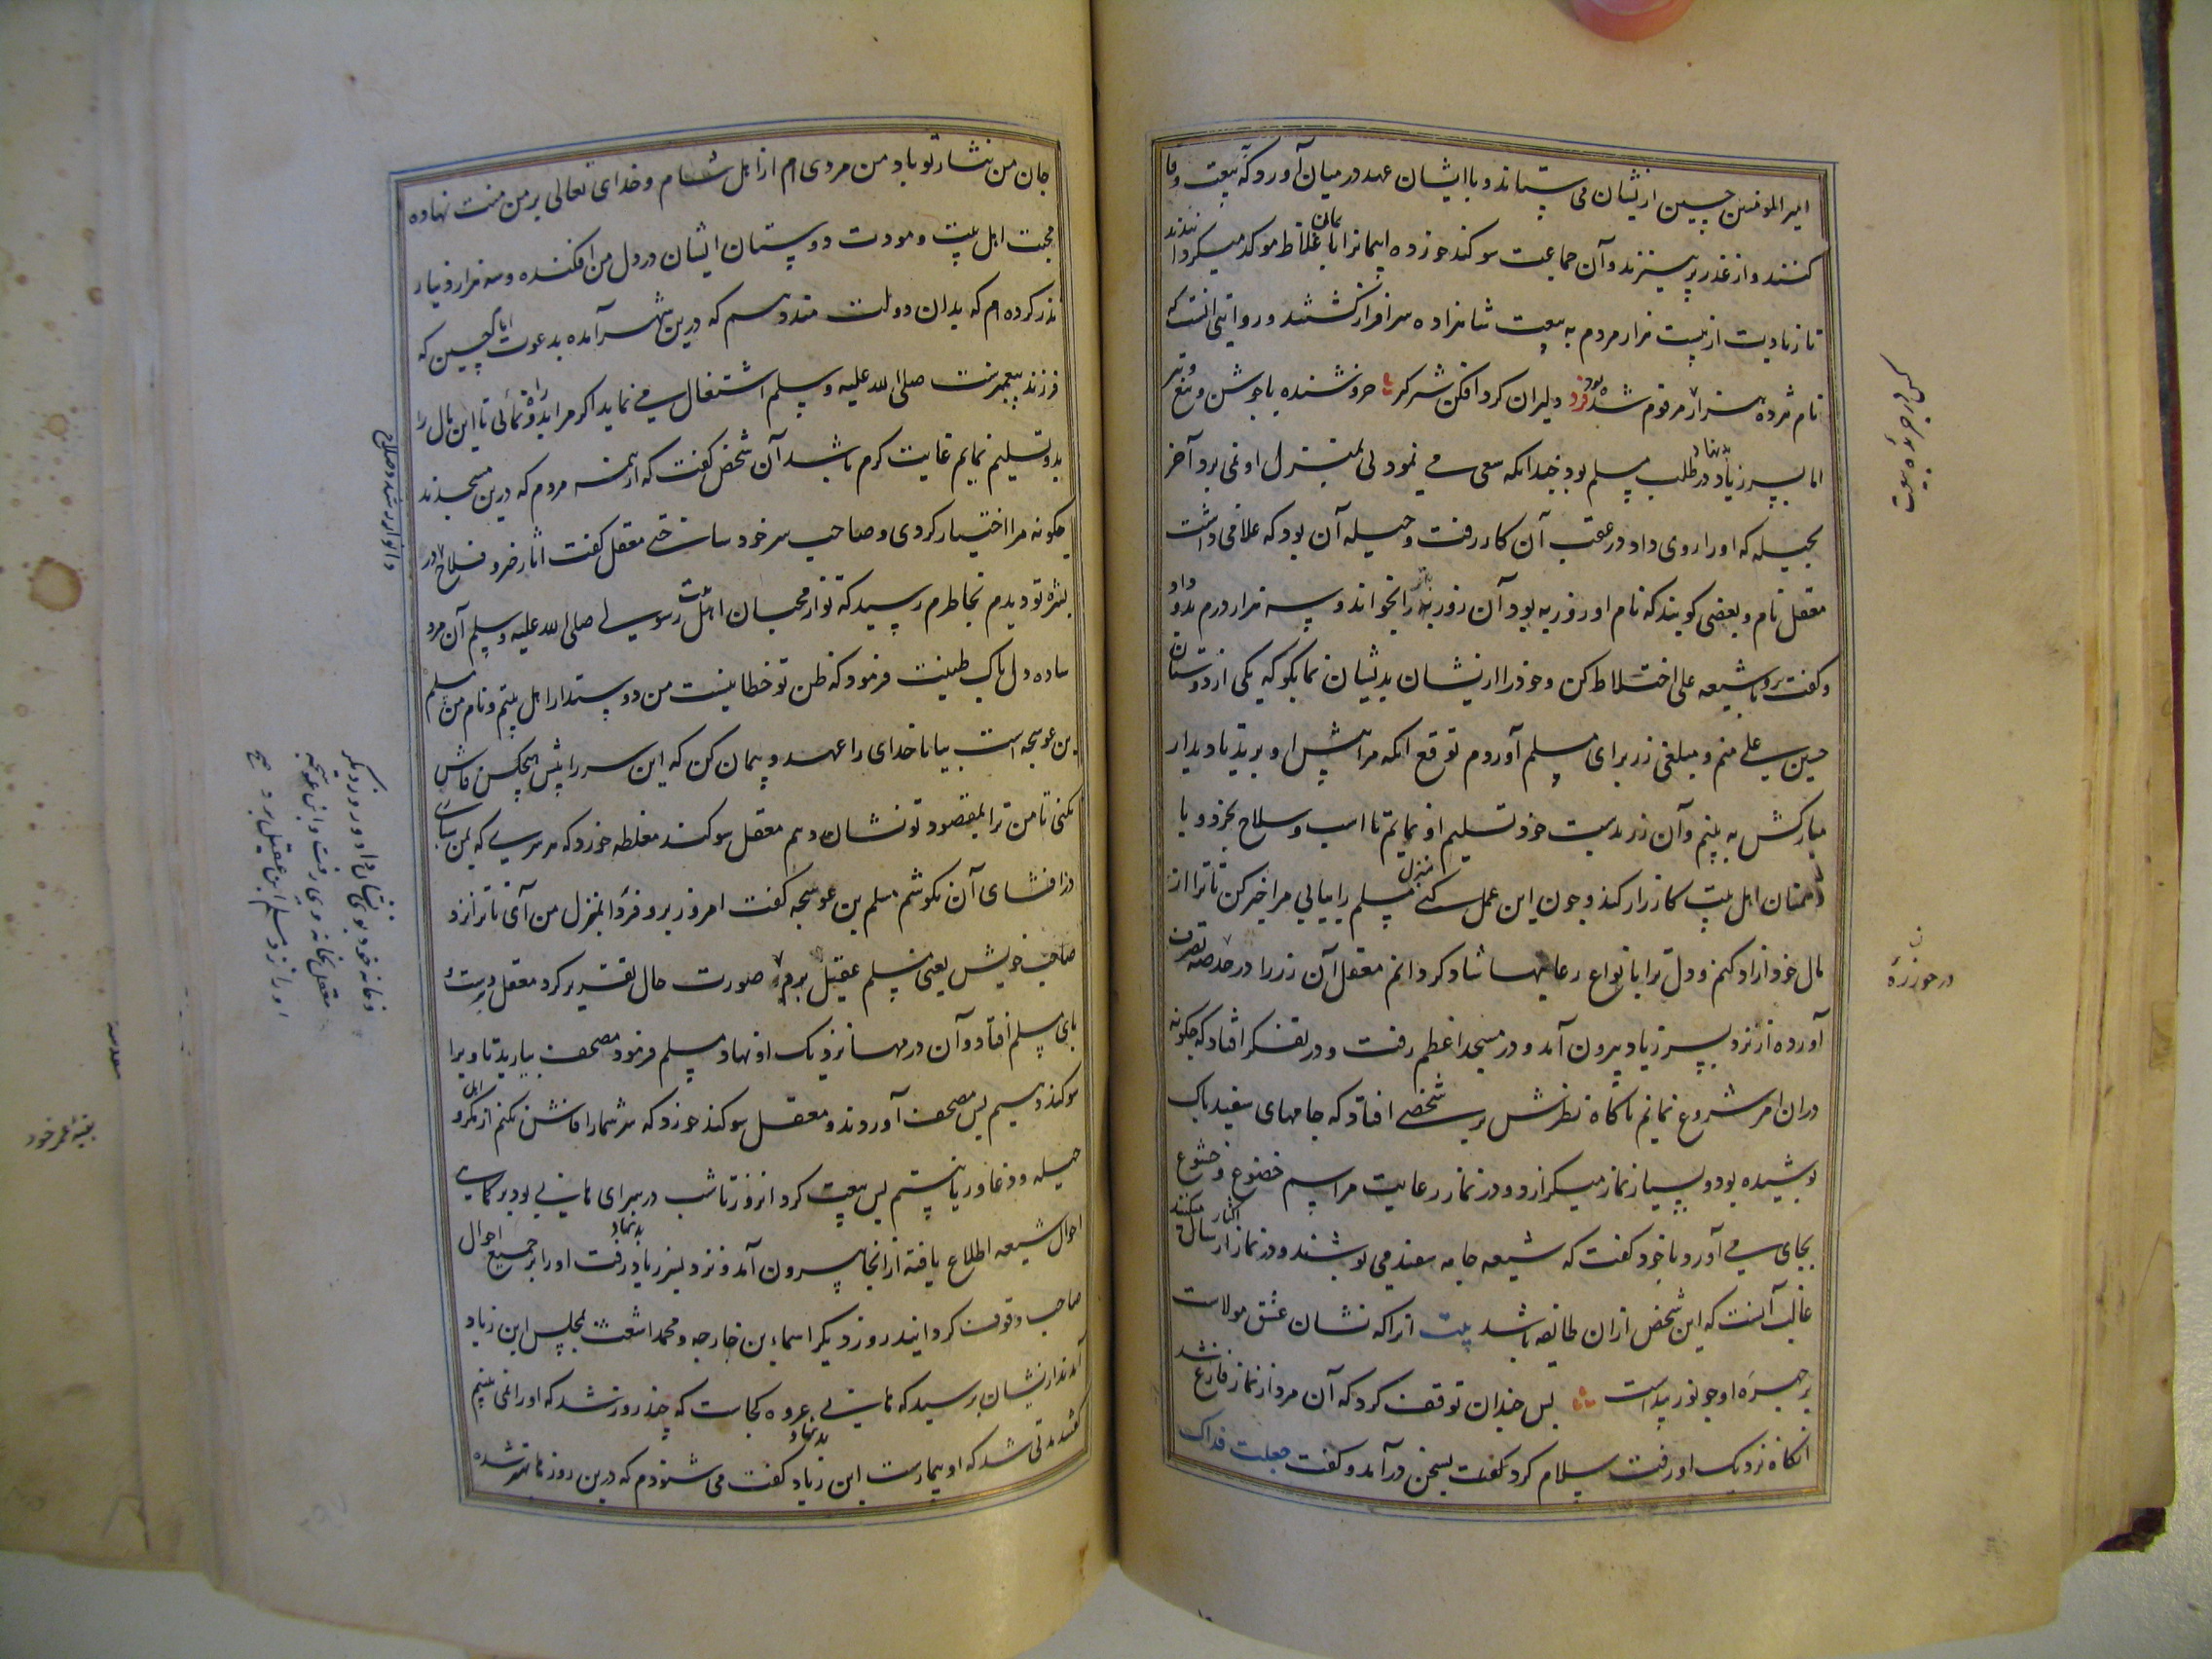 امیر المومنین حسین ازیشان می ستاند و با ایشان عهد در میان آورد که بیعت وفا
کنند و از غدر بپرهیزند و آن جماعت سوکند خورده ایمانرا بایمان غلاظ موکد میکردانیدند
تا زیادت از بیست هزار مردم به بیعت شاهزاده سرافراز کشتند و روایتی انست که
نام هژده هزار مرقوم شده بود فرد دلیران کرد افکن شیر کیر خروشنده با جوشن و تیغ و تیر
اما پسر زیاد بدنهاد در طلب مسلم بود چندانکه سعی می نمود پی بمنزل او نمی برد آخر
بحیله که او را روی داد در عقب آن کار رفت و حیله آن بود که غلامی داشت
معقل نام و بعضی کویند که نام او روزبه بود آن روزبه را بخواند و سه هزار درم بدو داد
و کفت برو با شیعه علی اختلاط کن و خود را ازیشان بدیشان نما بکو که یکی از دوستان
حسین علی منم و مبلغی زر برای مسلم آوردم توقع انکه مرا پیش او برید تا دیدار
مبارکش به بینم و آن زر بدست خود تسلیم او نمایم تا اسب و سلاح بخرد و با
دشمنان اهل بیت کارزار کند و چون این عمل کنی منزل مسلم را بیابی مرا خبر کن تا ترا از
مال خود ازاد کنم و دل ترا بانواع رعایتها شاد کردانم معقل آن زر را در تصرف
آورده از نزد پسر زیاد بیرون آمد و در مسجد اعظم رفت و در تفکر افتاد که چکونه
دران امر شروع نمایم ناکاه نظرش بر شخصی افتاد که جامهای سفید پاک
پوشیده بود و بسیار نماز میکزارد و در نماز رعایت مراسم خضوع و خشوع
بجای می آورد با خود کفت که شیعه جامه سفید می پوشند و در نماز اکثار میکنند
غالب آنست که این شخص ازان طائفه باشد بیت انرا که نشان عشق مولاست
بر چهره او چو نور پیداست پس چندان توقف کرد که آن مرد از نماز فارغ شد
انکاه نزدیک او رفت سلام کرد بسخن درآمد و کفت جعلت فداک
در حوزه
جان من نثار تو باد من مردی ام از اهل شام و خدای تعالی بر من منت نهاده
محبت اهل بیت و مودت دوستان ایشان در دل من افکنده و سه هزار دینار
نذر کرده ام که بدان دولت مند دهم که درین شهر آمده بدعوت امام حسین که
فرزند پیغمبرست صلی الله علیه وسلم اشتغال می نماید اکر مرا بدو راه نمائی تا این مال را
بدو تسلیم نمایم غایت کرم باشد آن شخص کفت که از همه مردم که درین مسجدند
چکونه مرا اختیار کردی و صاحب سر خود ساختی معقل کفت اثار خیر و فلاح در
بشره تو دیدم بخاطرم رسید که تو از محبان اهل بیت رسولی صلی الله علیه وسلم آن مرد
ساده دل پاک طینت فرمود که ظن تو خطا نیست من دوستدار اهل بیتم و نام من مسلم
بن عوسجه است بیا با خدای را عهد و پیمان کن که این سر را پیش هیچکس فاش
نکنی تا من ترا بمقصود تو نشان دهم معقل سوکند مغلظه خورد که هر سری که بمن سپاری
در افشای آن نکوشم مسلم بن عوسجه کفت امروز برو فردا بمنزل من آی تا ترا نزد
صاحب خویش یعنی مسلم عقیل برم صورت حال تقریر کرد معقل در دست و
پای مسلم افتاد و آن درمها نزدیک او نهاد مسلم فرمود مصحف بیارید تا ویرا
سوکند دهیم پس مصحف آوردند و معقل سوکند خورد که سر شما را فاش نکنم از مکر و
حیله و دغا در پس بیعت کرد انروز تا شب در سرای هانی بود بر تمامی
احوال شیعه اطلاع یافته از انجا بیرون آمد و نزد پسر زیاد بدنهاد رفت او را بر جمیع احوال
صاحب وقوف کردانید روز دیکر اسماء بن خارجه و محمد اشعث بمجلس ابن زیاد
آمدند ازیشان پرسید که هانی عروه کجاست که چند روز شد که او را نمی بینم
کفتند مدتی شد که او بیمارست ابن زیاد بدنهاد کفت می شنودم که درین روز ها بهتر شده
و خانه خود بوی نشان داد و روز دیکر
معقل بخانه وی رفت و ابن عوسجه
او را نزد مسلم ابن عقیل برد صح
بقیهٔ عمر خود